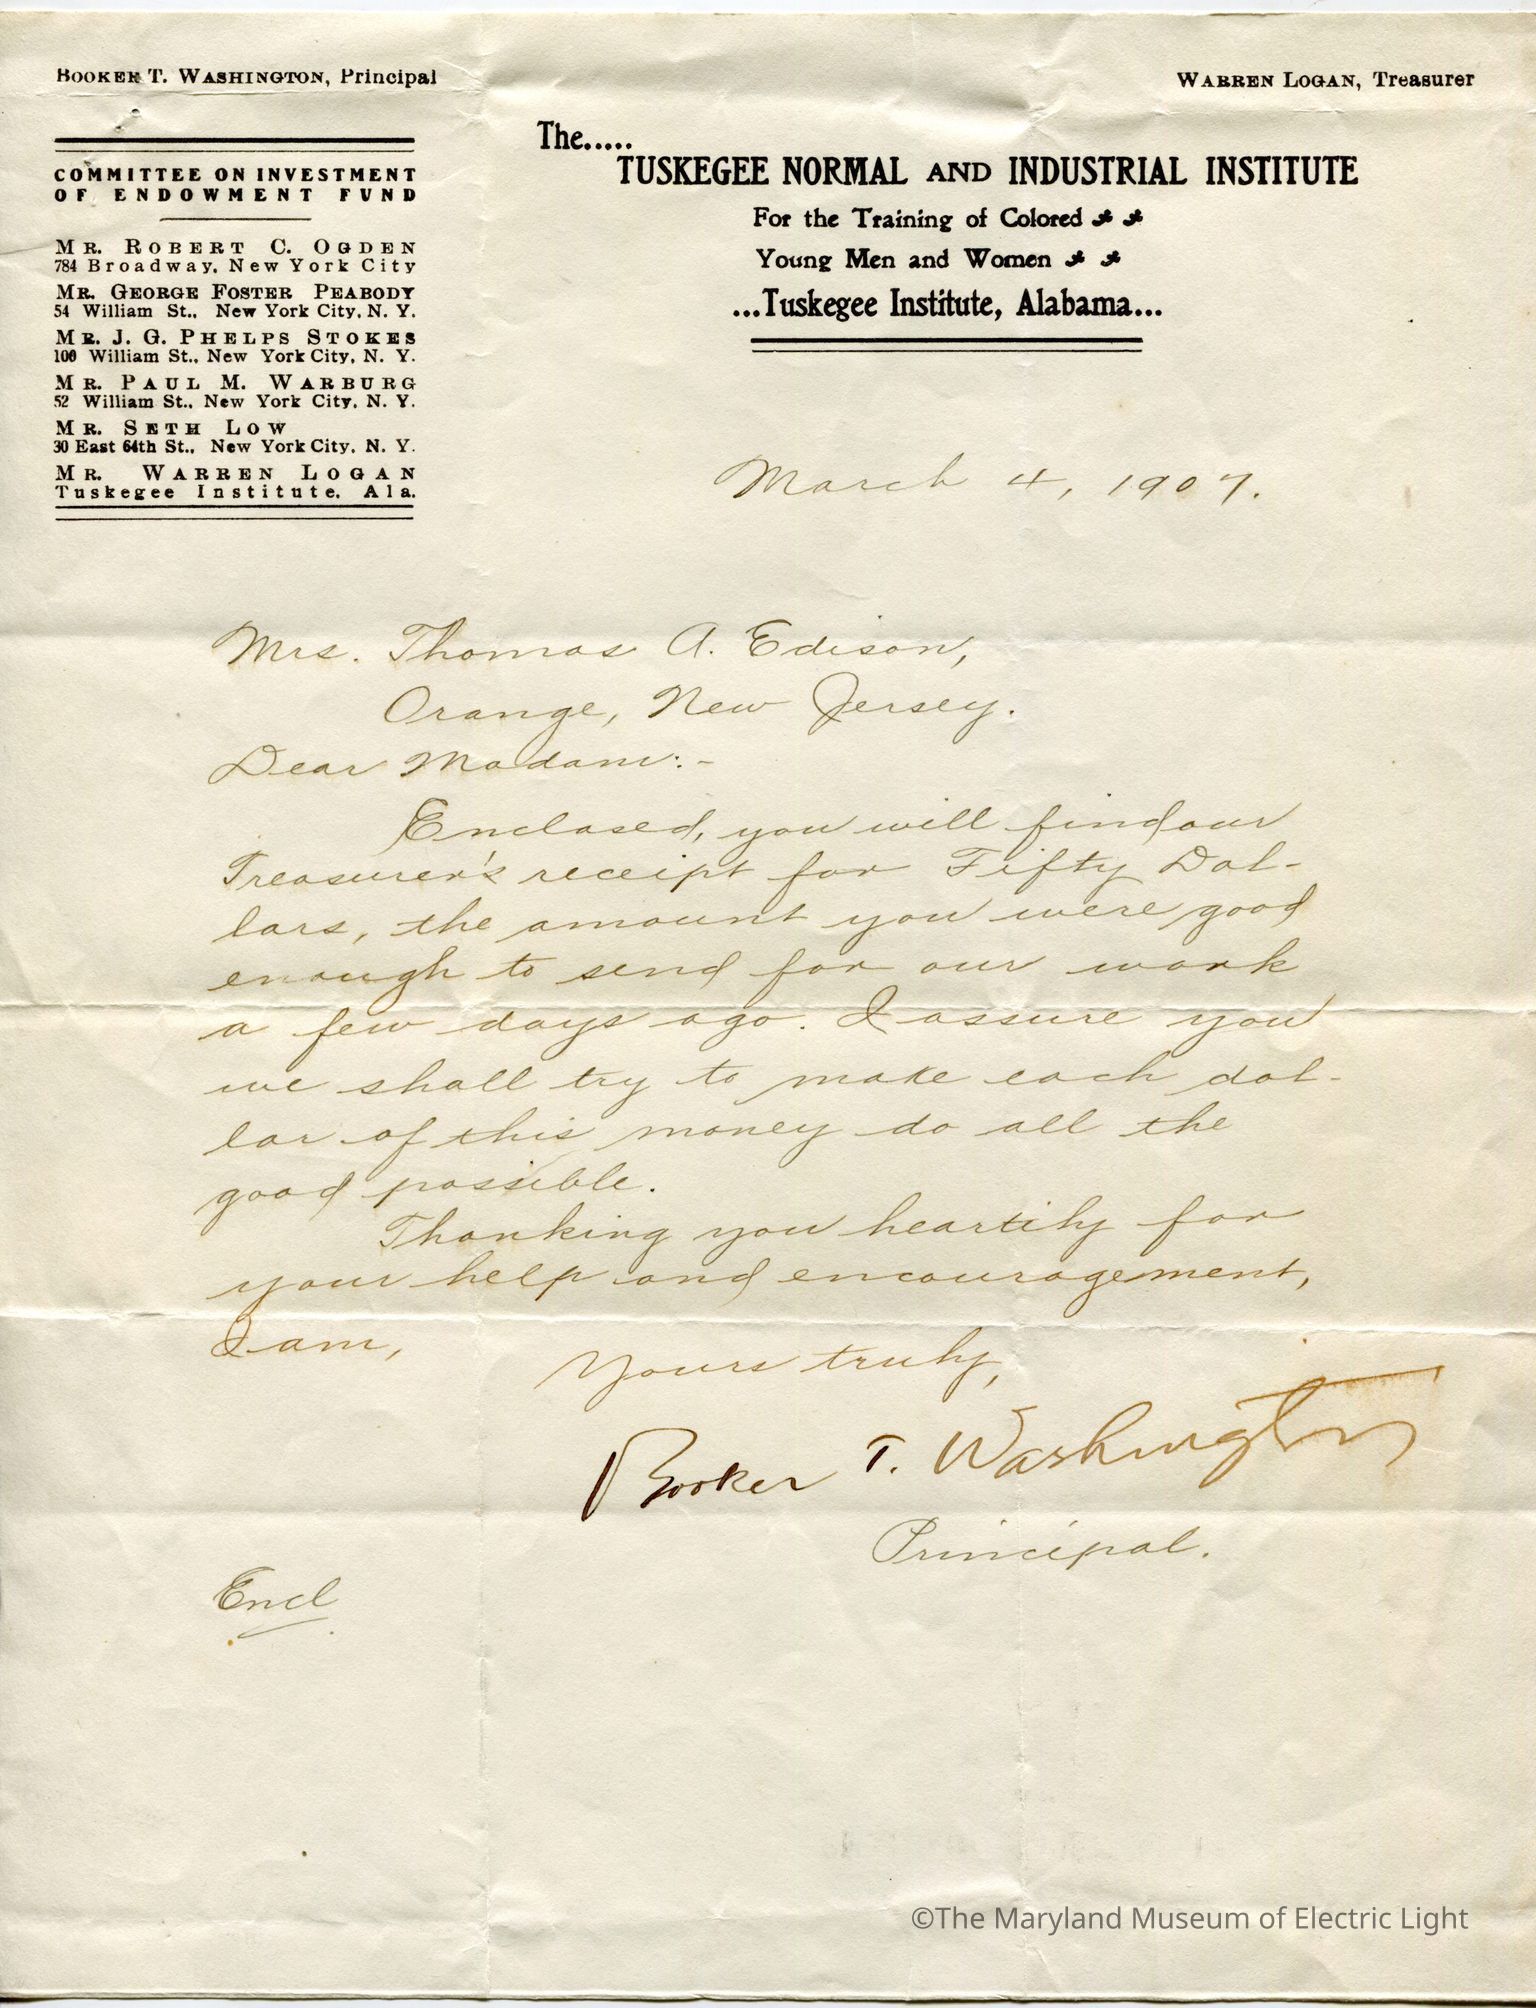 BOOKER T. WASHINGTON, Principal
WARREN LOGAN, Treasurer
COMMITTEE ON INVESTMENT
OF ENDOWMENT FUND
MR. ROBERT C. OGDEN
784 Broadway, New York City
MR. GEORGE FOSTER PEABODY
54 William St., New York City, N. Y.
MR. J. G. PHELPS STOKES
100 William St., New York City, N. Y.
MR. PAUL M. WARBURG
52 William St., New York City, N. Y.
MR. SETH LOW
30 East 64th St., New York City, N. Y.
MR. WARREN LOGAN
Tuskegee Institute, Ala.
The.....
TUSKEGEE NORMAL AND INDUSTRIAL INSTITUTE
For the Training of Colored
Young Men and Women
...Tuskegee Institute, Alabama...
March 4, 1907.
Mrs. Thomas A. Edison,
Orange, New Jersey.
Dear Madam:-
Enclosed, you will find our
Treasurer's receipt for Fifty Dol-
lars, the amount you were good
enough to send for our work
a few days ago. I assure you
we shall try to make each dol-
lar of this money do all the
good possible.
Thanking you heartily for
your help and encouragement,
I am,
Yours truly,
Booker T. Washington
Principal.
Encl
©The Maryland Museum of Electric Light